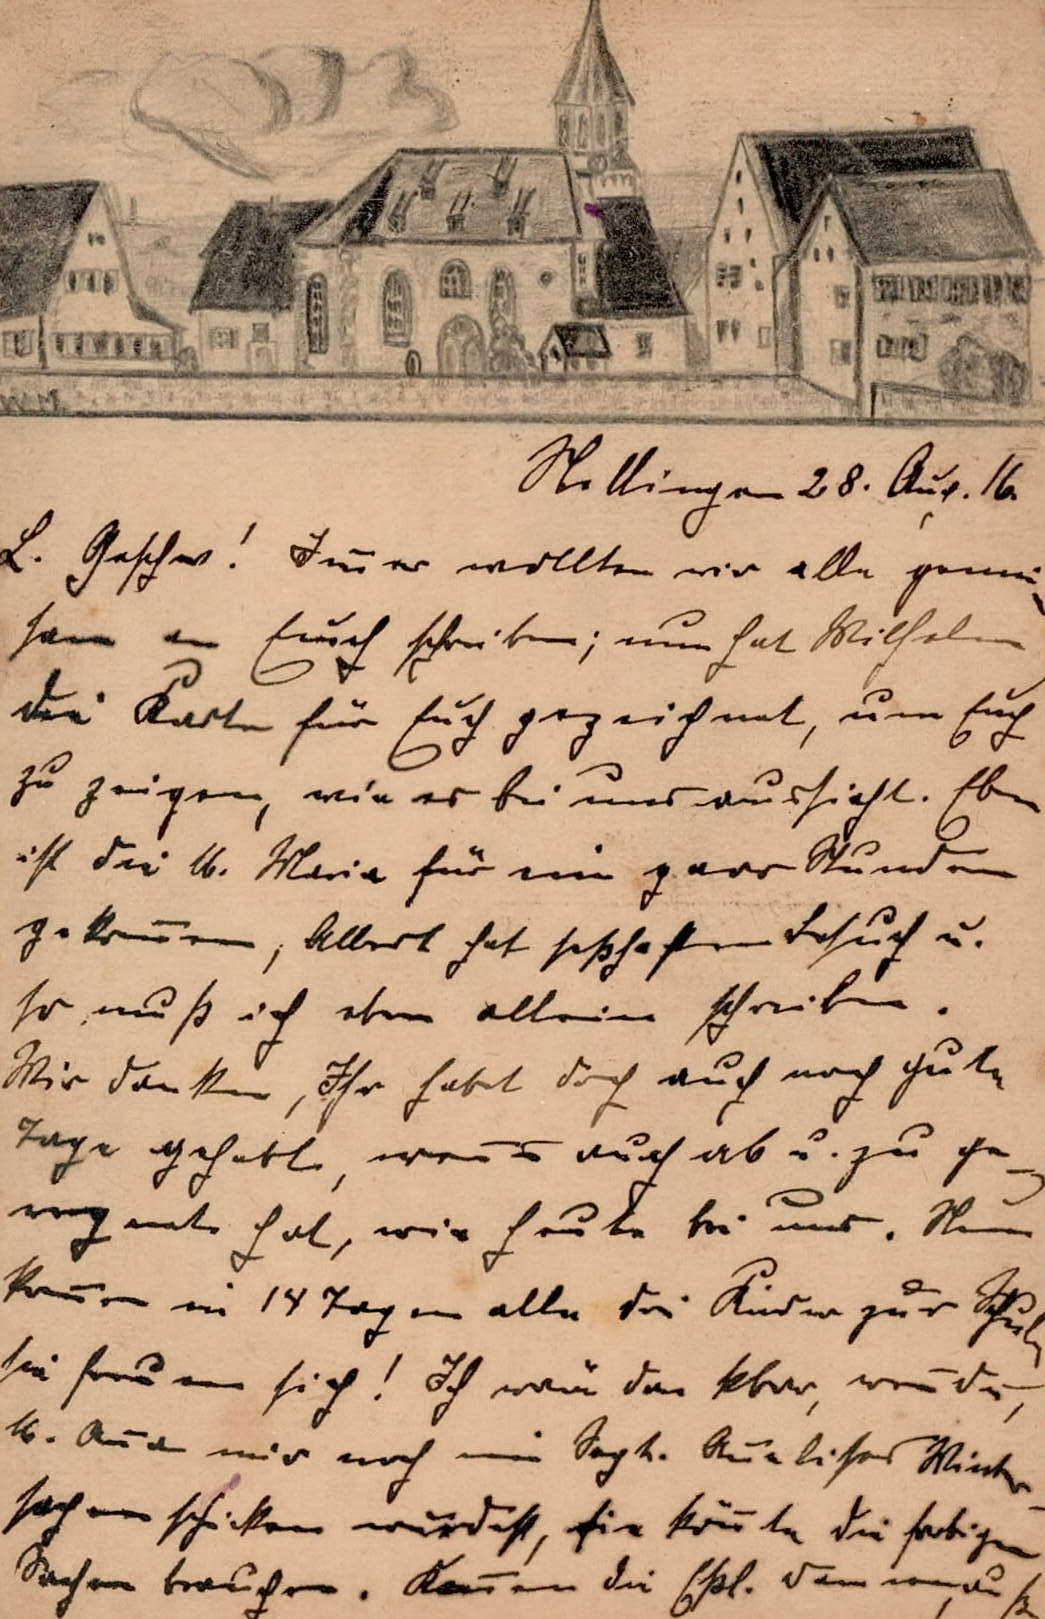 Nellingen 28. Aug. 16.
L. Geschw! Im̄er wollten wir alle gemein
sam an Euch schreiben; nun hat Wilhelm
die Karte für Euch gezeichnet, um Euch
zu zeigen, wie es bei uns aussieht. Eben
ist die lb. Maria für ein paar Stunden
gekom̄en, Albert hat seßhaften Besuch u.
so muß ich eben allein schreiben.
Wir denken, Ihr habet doch auch noch gute
Tage gehabt, wen̄s auch ab u. zu ge-
regnet hat, wie heute bei uns. Nun
kom̄en in 14 Tagen alle drei Kinder zur Schule,
sie freuen sich! Ich wäre dankbar, wen̄ du,
lb. An̄a mir noch im Sept. An̄elises Winter-
sachen schicken würdest, sie kön̄te die farbigen
Sachen brauchen. Kom̄en die